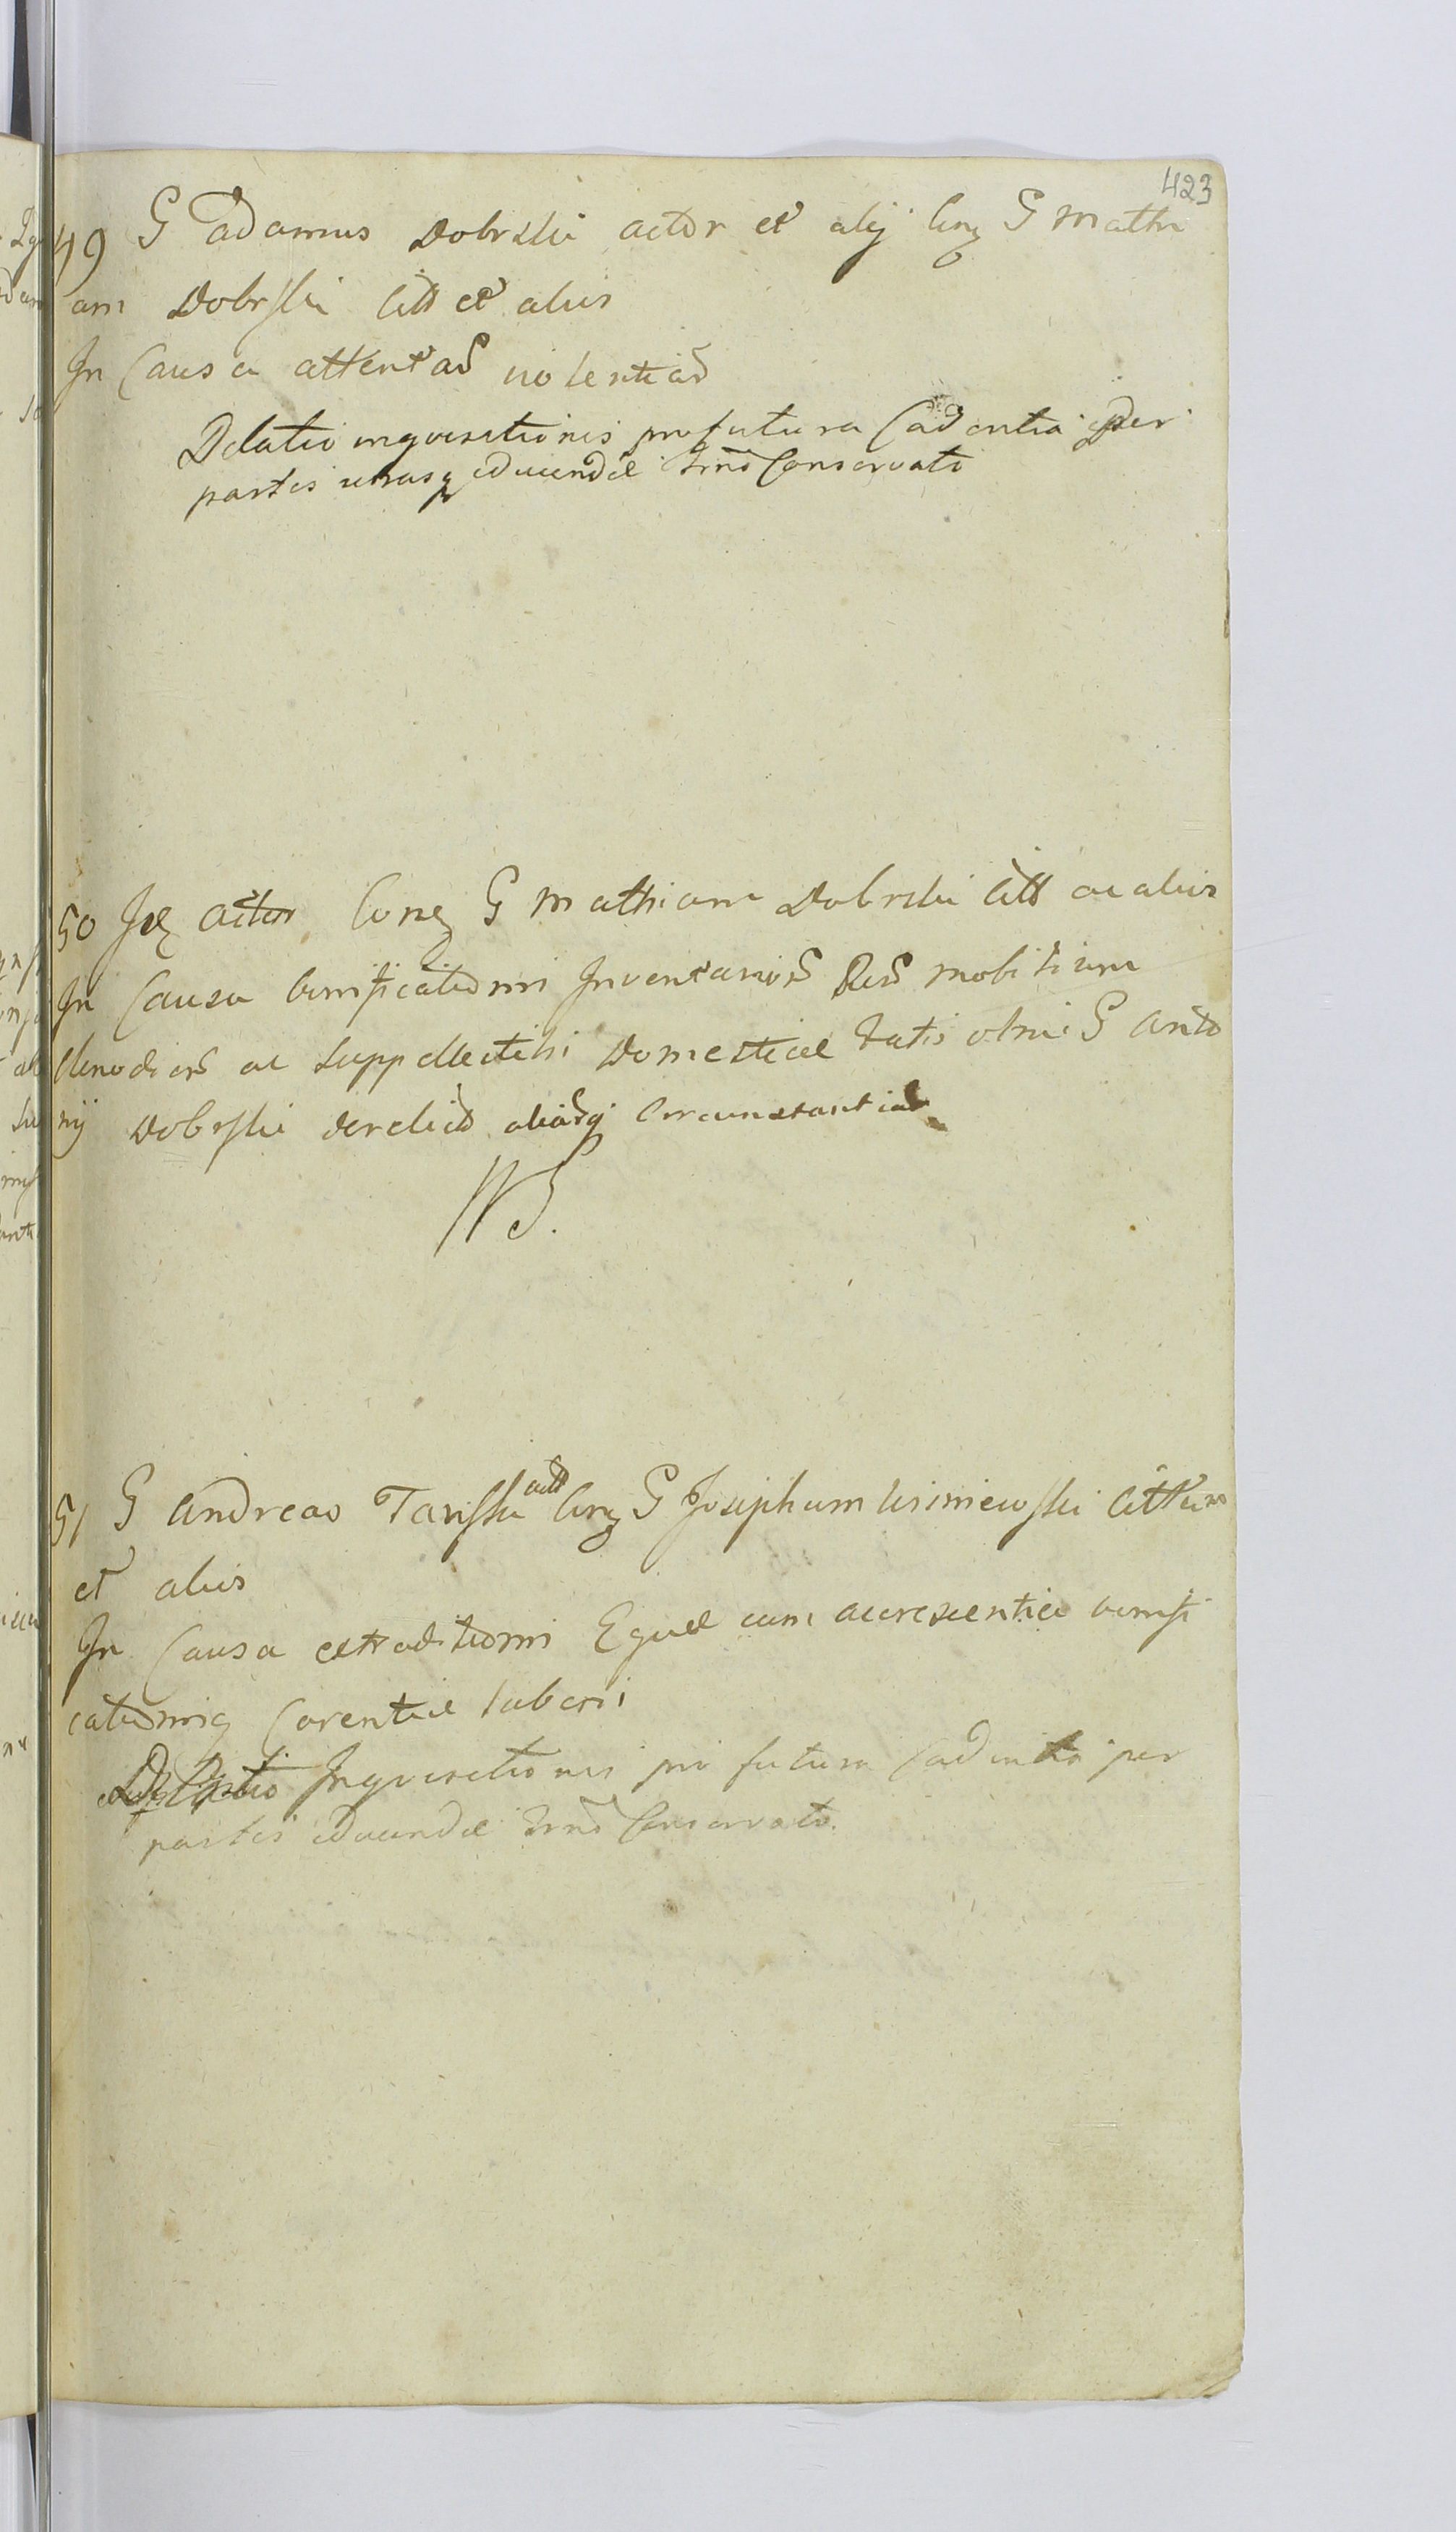 423
49 G Adamus Dobrski actor et alij Conq G Mathi
am Dobrski Citt et alios
In Causa attentar violentiar
Delatio inquisitionis pro futura Cadentia per
partes utrasq educendae Trnō Conservato
50 Idē actor Conq G Mathiam Dobrski Citt ac alios
In Causa bonificationis Inventarior Rer mobilium
Clenodior ac Suppellectilis Domesticae olim G Anto
nij Dobrski derelict aliarq Circumstantiar
NS.
51 G Andreas Tarsski actt Conq G Josephum Wisniewski Cittum
et alios
In Causa extraditionis Equae cum accrescentia bonifi
cationisq Carentiae laboris
Delatio Inquisitionis pro futura Cadentia per
partes educendae Trnō Conservato.